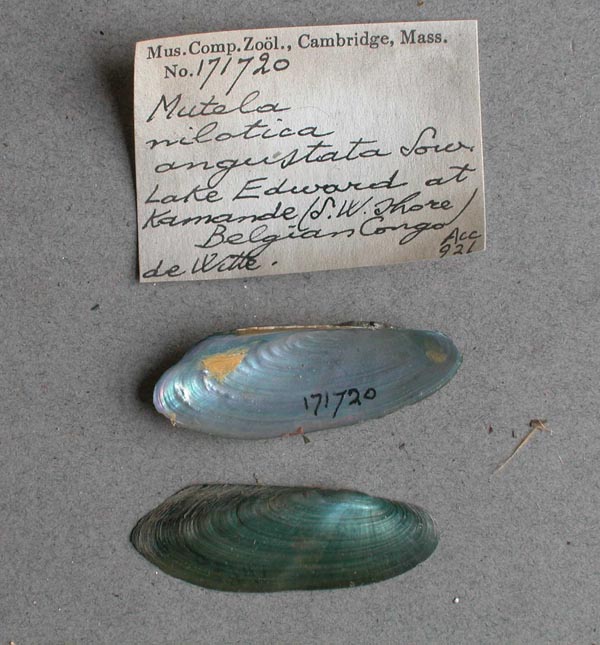 Mus.Comp.Zoöl., Cambridge, Mass.
No.171720
Mutela
nilotica
angustata Sow.
Lake Edward at
Kamande (S.W. Shore)
Belgian Congo
Acc
921
de Witte.
171720